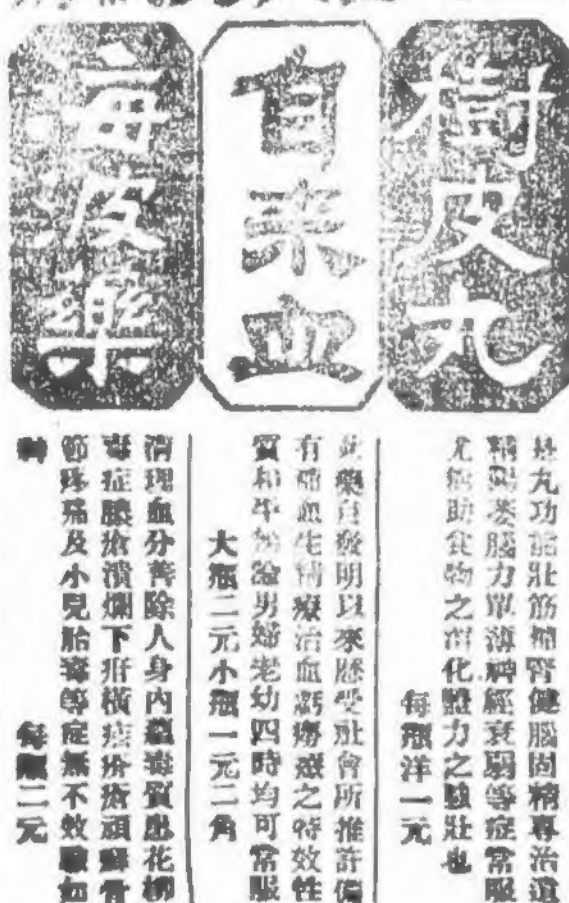 樹皮丸
自來血
海波藥
丸功能壯筋補腎健腦固精專治遺
精陽萎腦力單薄神經衰弱等症常服
尤能助食物之消化體力之駿壯也
每瓶洋一元
此藥自發明以來歷受社會所推許備
有補血生精療治血虧癆瘵之特效性
質和平無論男婦老幼四時均可常服
大瓶二元小瓶一元二角
清理血分善除人身內蘊毒質患花柳
毒症臁瘡潰爛下疳橫痃疥瘡頑癬骨
節疼痛及小兒胎毒等症無不效驗如
神
每瓶二元